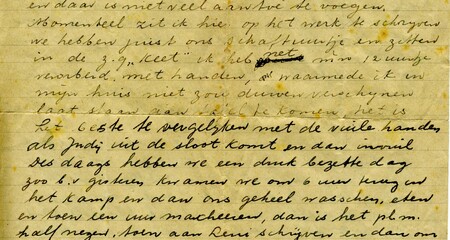 en daar is niet veel aan toe te voegen.
Momenteel zit ik hier op het werk te schrijven
we hebben juist ons schaftuurtje en zitten
in de z.g. "Keet" ik heb net mijn 12 uurtje
verorberd, met handen, waarmede ik in
mijn huis niet zou durven verschijnen
laat staan aan te komen, het is
het beste te vergelijken met de vuile handen
als Judy uit de sloot komt en dan invuil
Des daags hebben we een druk bezette dag
zoo b.v gisteren kwamen we om 6 uur terug in
het kamp en dan ons geheel wasschen, eten
en toen een uur marcheeren, dan is het pl.m.
half negen, toen aan Leni schrijven en dan om